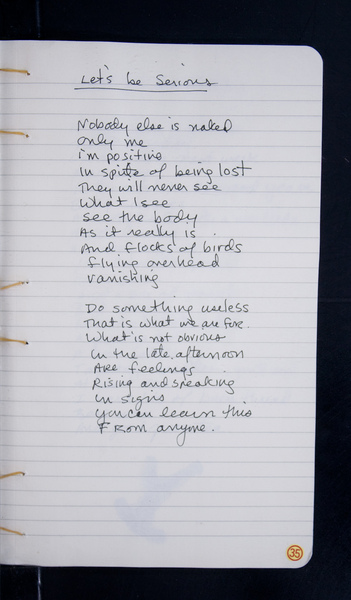 Let's be Serious
Nobody else is naked
only me
i'm positive
In spite of being lost
They will never see
What I see
see the body
As it really is.
And flocks of birds
flying overhead
vanishing
Do something useless
That is what we are for.
What is not obvious
in the late afternoon
Are feelings
Rising and speaking
in signs
you can learn this
From anyone.
35